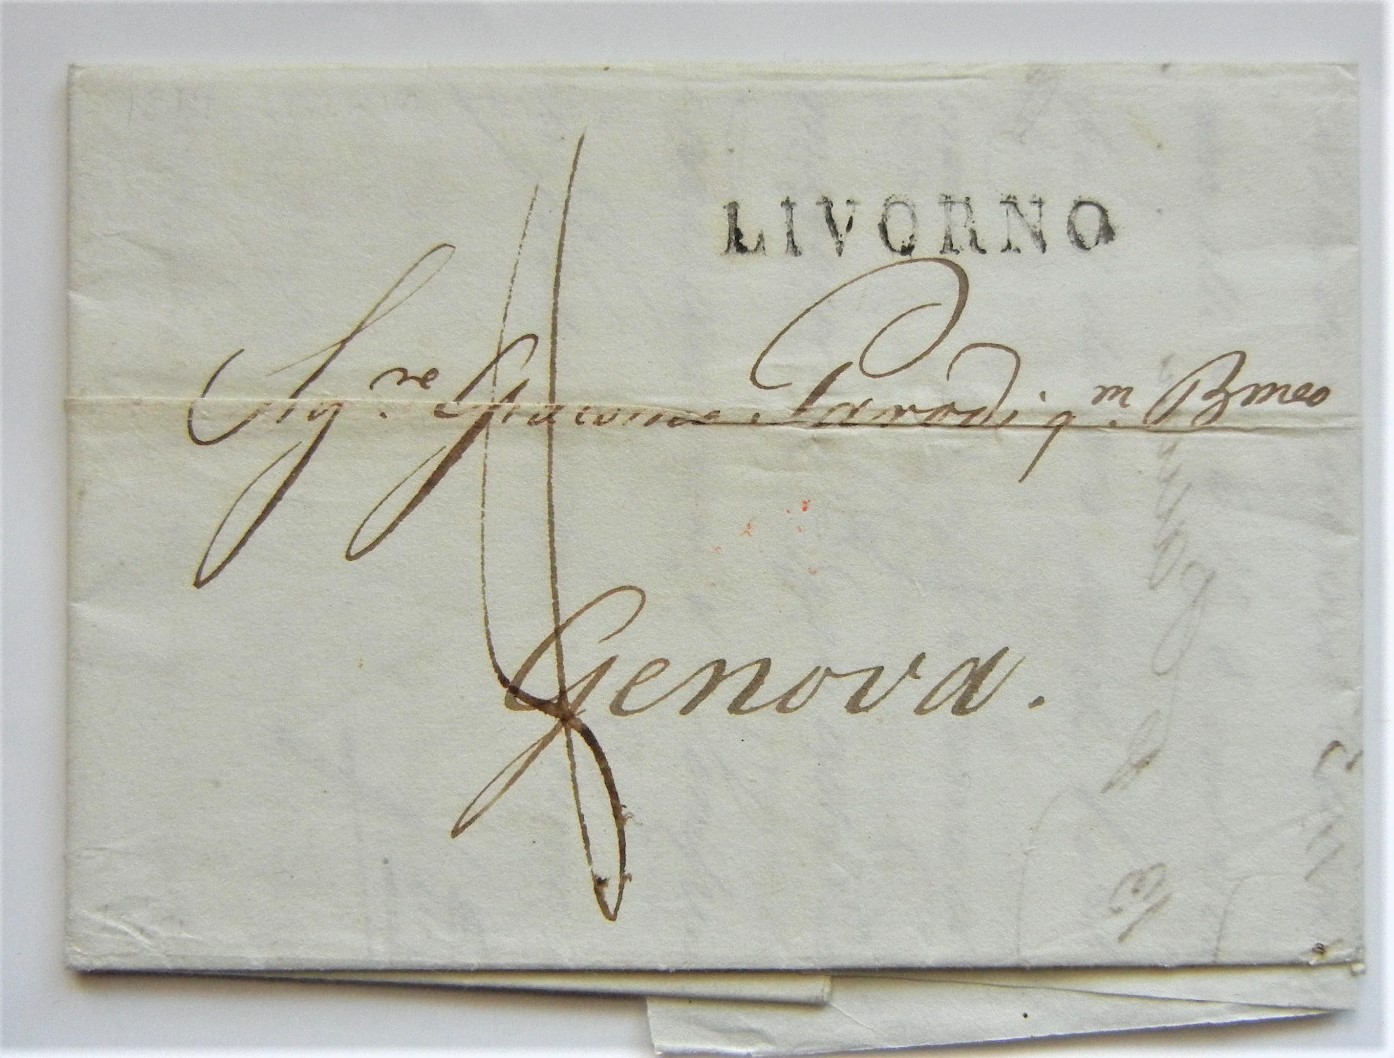 LIVORNO
Sig.re Giacomo Parodi q.m Bmeo
Genova.